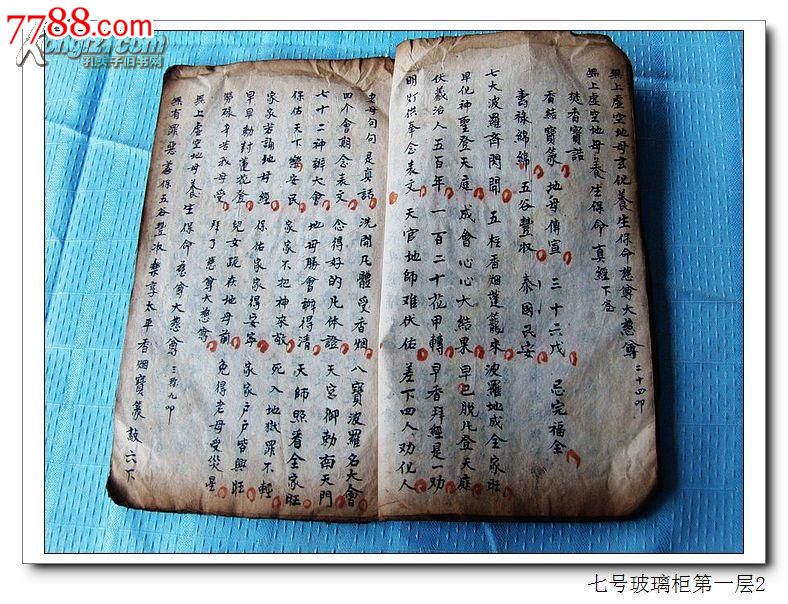 7788.com
Kongfz.com
孔夫子旧书网
無上虛空地母玄化養生保命慈尊大慈尊 二十四叩
無上虛空地母養生保命真經下卷
焚香寶誥
香結寶篆 地母傳宣 三十六戊 忌完福全
壽祿綿綿 五谷豐收 泰國民安
七大波羅齊閃開 五柱香烟蓬籠來 波羅地成全家旺
早化神聖登天庭 成會心心大結果 早已脫凡登天庭
伏羲治人五百年 一百二十花甲轉 早香拜經是一功
明灯供奉念表文 天官地師难伏佑 差下四人劝化人
老母句句是真話 洗開凡體受香烟 八寶波羅名大會
四个會期念表文 念得好的凡体證 天宮御勅南天門
七十二神辦大會 地母勝會辦得清 天師照看全家旺
保佑天下樂安民 家家不把神來敬 死入地獄罪不輕
家家若誦地母經 保佑家家得安寧 家家户户皆興旺
早早勅封蓮花登 兒女跪在地母前 免得老母受災星
勞碌辛苦我母受 拜了慈尊大慈尊
無上虛空地母養生保命 慈尊大慈尊 三称九叩
無有罪孽 舊保五谷豐收 樂享太平 香烟寶篆 敲六下
七号玻璃柜第一层2